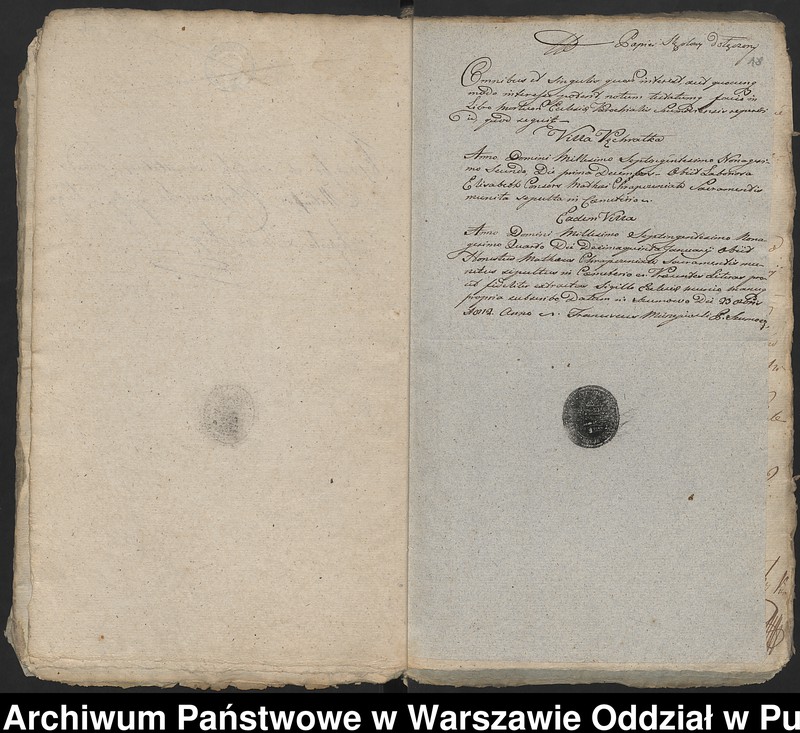 Papier Stęplowy dołączony
18
Omnibus et Singulis quorum interest aut quomodo
modo interesse poterit notum testatumq facio in
Libro mortuorum Ecclesiæ Parochialis reperiri
id quod sequit
Villa Wychratka
Anno Domini Millesimo Septingentesimo Nonagesi
mo Secundo Die prima Decembris Obiit Laboriosa
Elisabeth Consors Mathei Chrapczeniak Sacramentis
munita sepulta in Cæmeterio
Eadem Villa
Anno Domini Millesimo Septingentesimo Nona
gesimo Quarto Die January Obiit
Honestus Mathæus Sacramentis mu
nitus sepultus in Cæmeterio Præsentes Literas pro
ut fideliter extractas Sigillo Ecclesiæ munio manuq
propria subscribo Datum in Die 23
1812 Anno Franciscus
Archiwum Państwowe w Warszawie Oddział w Pu